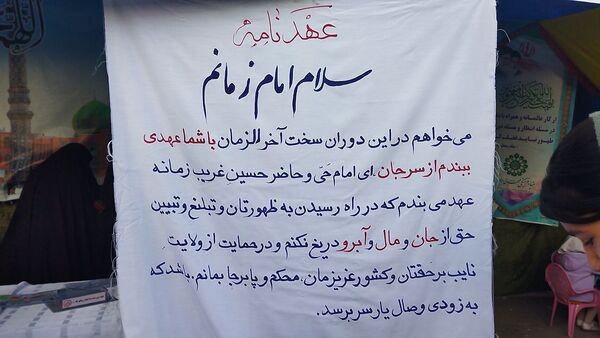 عهدنامه
سلام امام زمانم
می‌خواهم در این دوران سخت آخرالزمان با شما عهدی
ببندم از سر جان. ای امام حَی و حاضر حسینِ غریب زمانه
عهد می‌بندم که در راه رسیدن به ظهورتان و تبلیغ و تبیین
حق از جان و مال و آبرو دریغ نکنم و در حمایت از ولایت،
نایب برحقتان و کشور عزیزمان، محکم و پابرجا بمانم. باشد که
به زودی وصال یار سر برسد.